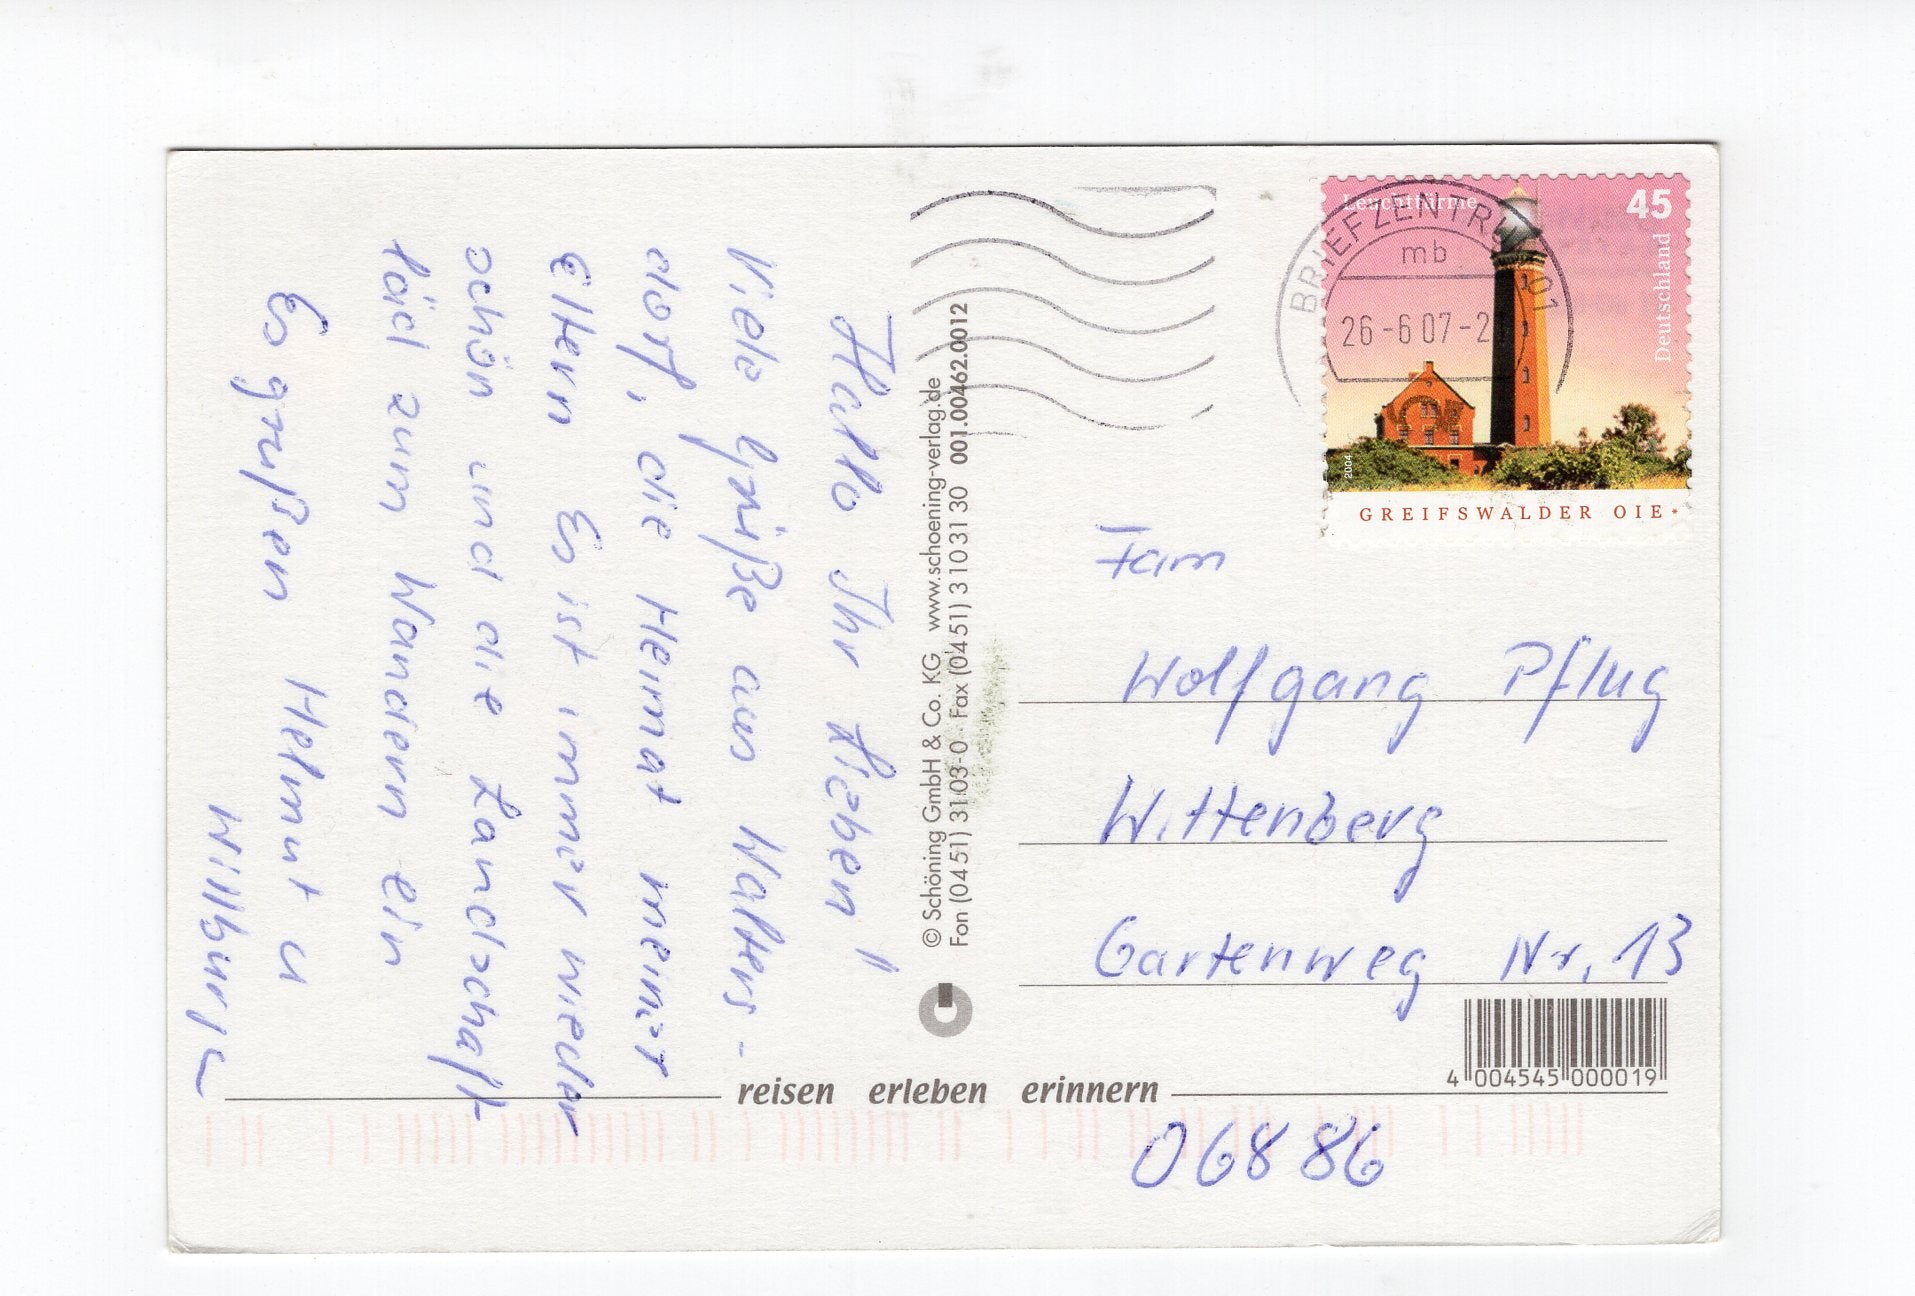 Hallo Ihr Lieben!
Viele Grüße aus Walters-
dorf, die Heimat meiner
Eltern Es ist immer wieder
schön und die Landschaft
läd zum Wandern ein
Es grüßen Helmut u
Willburg
© Schöning GmbH & Co. KG www.schoening-verlag.de
Fon (04 51) 31 03-0 Fax (04 51) 3 10 31 30 001.00462.0012
Leuchttürme
45
Deutschland
2004
GREIFSWALDER OIE
BRIEFZENTRUM 01
mb
26 -6 07 - 2
Fam
Wolfgang Pflug
Wittenberg
Gartenweg Nr. 13
4 004545 000019
reisen erleben erinnern
06886